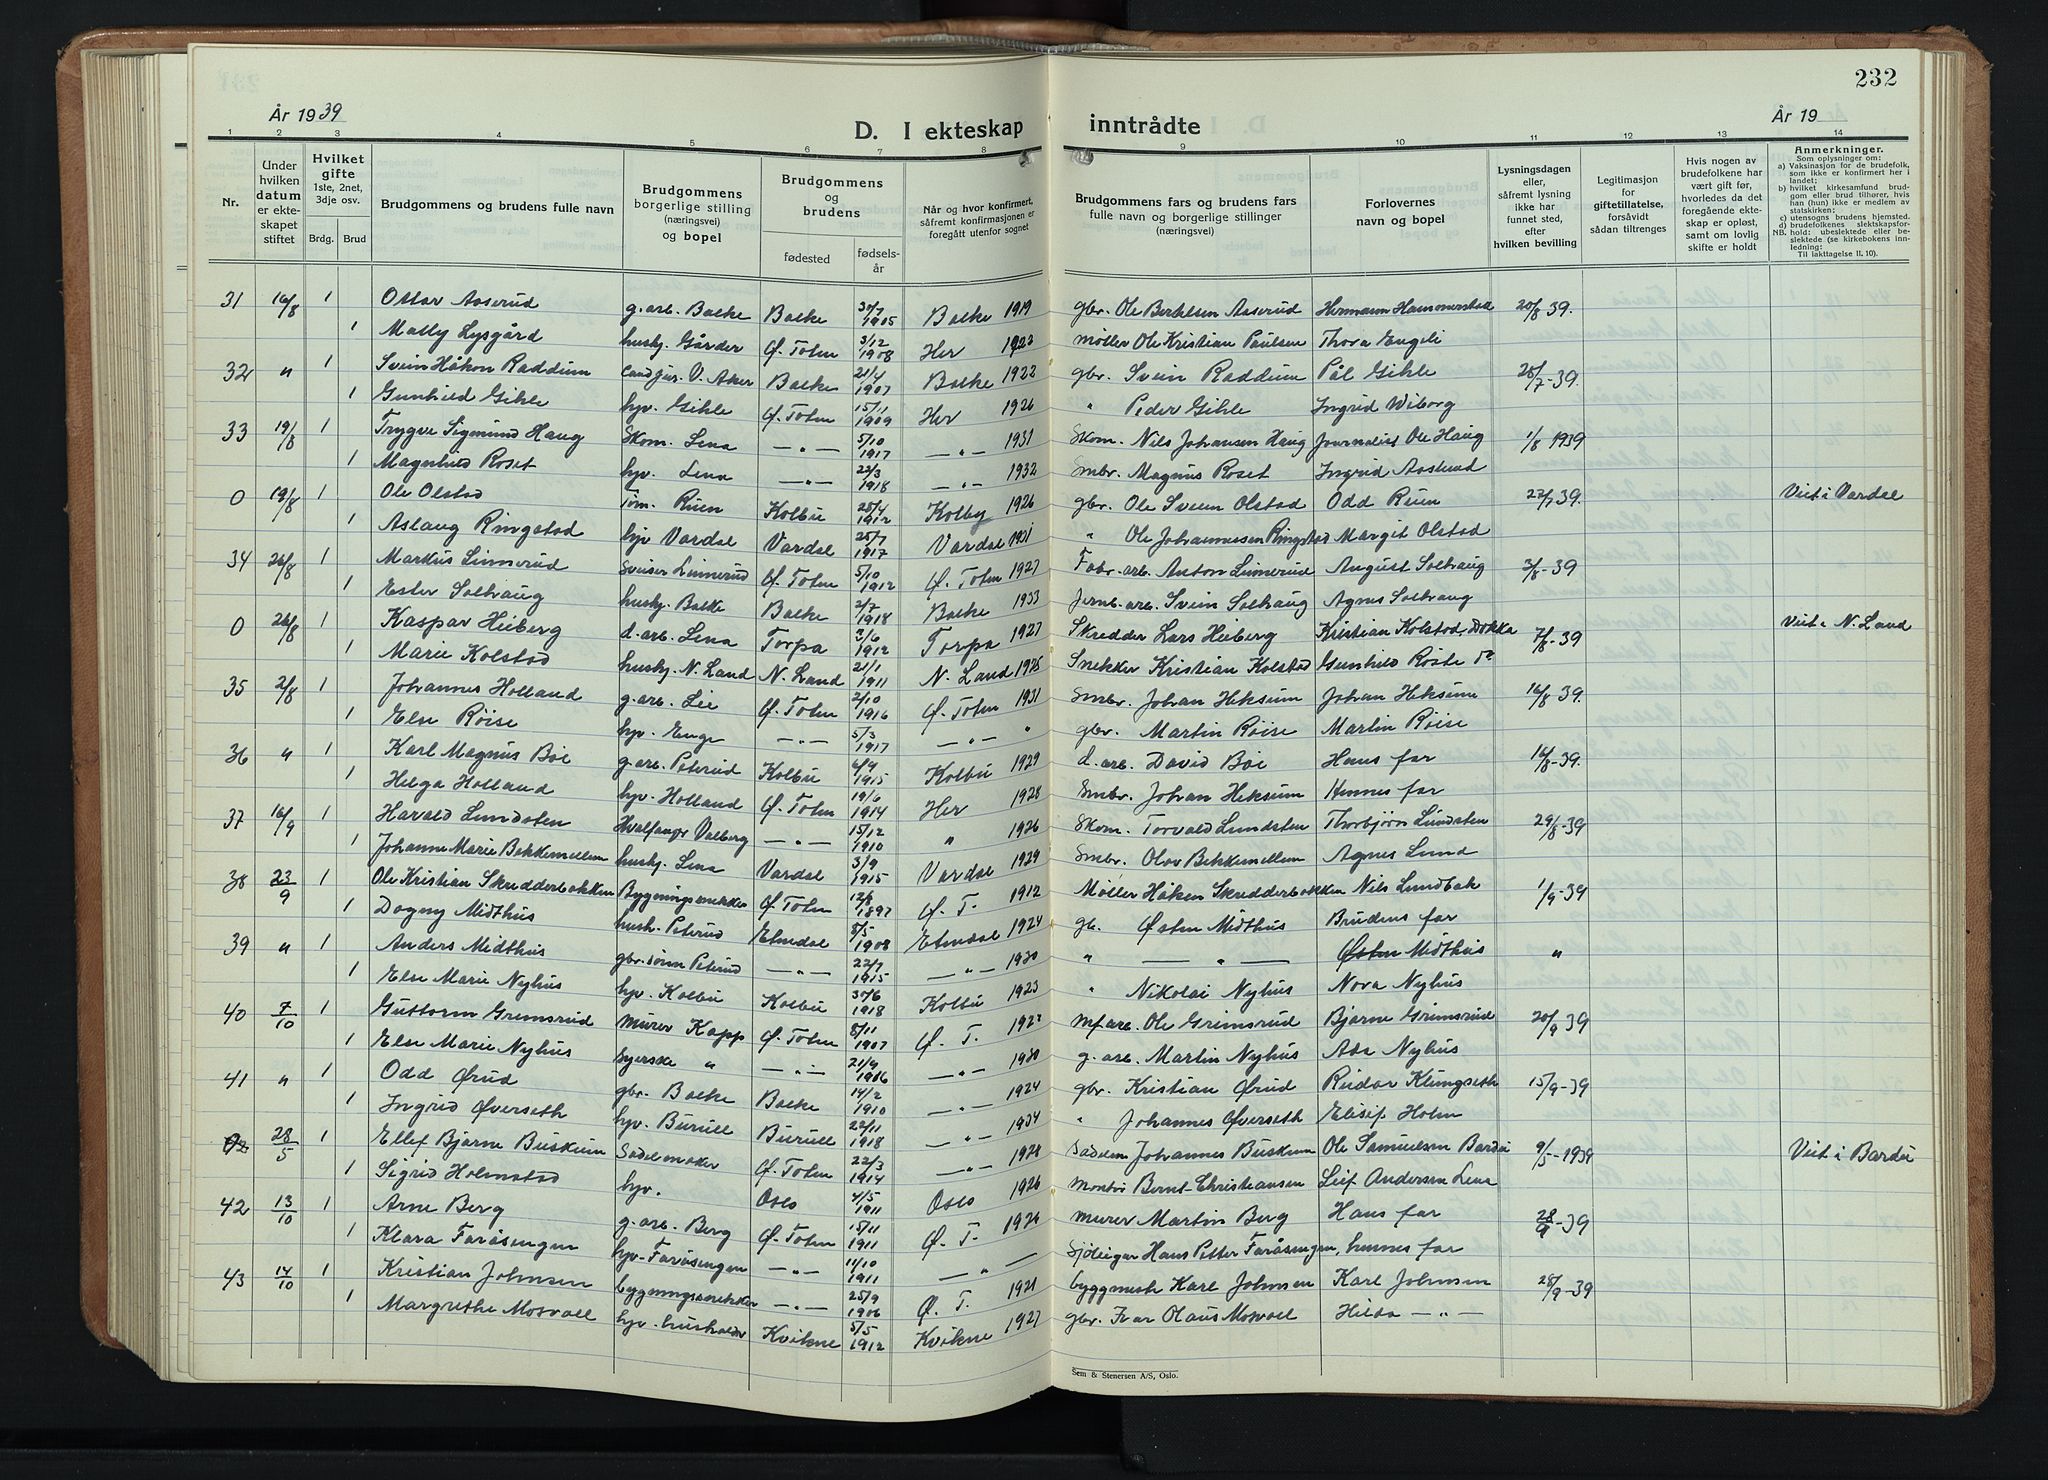 232
År 1939
D. I ekteskap inntrådte
År 19
1 2 3 4 5 6 7 8 9 10 11 12 13 14
Nr.
Under hvilken datum er ekteskapet stiftet
Hvilket gifte 1ste, 2net, 3dje osv.
Brdg. Brud
Brudgommens og brudens fulle navn
Brudgommens borgerlige stilling (næringsvei) og bopel
Brudgommens og brudens
fødested fødselsår
Når og hvor konfirmert, såfremt konfirmasjonen er foregått utenfor sognet
Brudgommens fars og brudens fars fulle navn og borgerlige stillinger (næringsvei)
Forlovernes navn og bopel
Lysningsdagen eller, såfremt lysning ikke har funnet sted, efter hvilken bevilling
Legitimasjon for giftetillatelse, forsåvidt sådan tiltrenges
Hvis nogen av brudefolkene har vært gift før, hvorledes da det foregående ekteskap er opløst, samt om lovlig skifte er holdt
Anmerkninger.
Som oplysninger om:
a) Vaksinasjon for de brudefolk, som ikke er konfirmert her i landet:
b) hvilket kirkesamfund brudgom eller brud tilhører, hvis han (hun) ikke er medlem av statskirken:
c) utensogns brudens hjemsted.
d) brudefolkenes slektskapsforhold: ubeslektede eller beslektede (se kirkebokens innledning:
NB.
Til iakttagelse II. 10).
31 16/8 1 Ottar Aaserud g.arb. Balke Balke 30/7 1905 Balke 1919 gbr. Ole Berthelsen Aaserud Hermann Hammerstad 20/8 39.
1 Mally Lysgård husbj. Gårder Ø. Toten 3/12 1908 Her 1923 møller Ole Kristian Paulsen Thora Engeli
32 " 1 Svein Håkon Raddum cand jur. V. Aker Balke 21/4 1907 Balke 1922 gbr. Svein Raddum Pål Gihle 25/7-39.
1 Gunhild Gihle hjv. Gihle Ø. Toten 15/11 1909 Her 1926 " Peder Gihle Ingrid Wiborg
33 19/8 1 Trygve Sigmund Haug Skom. Lena —"— 5/10 1917 —"— 1931 Skom. Nils Johansen Haug Journalist Ole Haug 1/8 1939
1 Magnhild Roset hjv. Lena —"— 22/3 1918 —"— 1932 Smbr. Magnus Roset Ingrid Aaslund
0 19/8 1 Ole Olstad Tøm. Ruen Kolbu 25/4 1912 Kolbu 1926 gbr. Ole Sveen Olstad Odd Ruen 22/7 39. Viet i Vardal
1 Aslaug Ringstad hjv Vardal Vardal 25/7 1917 Vardal 1931 " Ole Johannessen Ringstad Margit Olstad
34 26/8 1 Markus Linnerud Sveiser Linnerud Ø. Toten 5/10 1912 Ø. Toten 1927 Fabr.arb. Anton Linnerud August Solhaug 3/8-39
1 Ester Solhaug husbj. Balke Balke 2/7 1918 Balke 1933 Jernb.arb. Svein Solhaug Agnes Solhaug
0 26/8 1 Kaspar Heiberg d.arb. Lena Torpa 3/6 1912 Torpa 1927 Skredder Lars Heiberg Kristian Kolstad, Dokka 7/8-39 Viet i N. Land
1 Marie Kolstad husbj. N. Land N. Land 21/1 1911 N. Land 1925 Snekker Kristian Kolstad Gunhild Røste do
35 2/8 1 Johannes Holland g.arb. Lie Ø. Toten 2/10 1916 Ø. Toten 1931 Smbr. Johan Heksum Johan Heksum 16/8-39.
1 Else Røise hjv. Enge —"— 5/3 1917 —"— " gbr. Martin Røise Martin Røise
36 " 1 Karl Magnus Bøe g.arb. Peterud Kolbu 6/9 1915 Kolbu 1929 d.arb. David Bøe Hans far 16/8-39.
1 Helga Holland hjv. Holland Ø. Toten 19/6 1914 Her 1928 Smbr. Johan Heksum Hennes far
37 16/9 1 Harald Lundsten Hvalfanger Valberg —"— 15/12 1910 " 1926 Skom. Torvald Lundsten Thorbjørn Lundsten 29/8-39
1 Johanne Marie Bekkemellem husbj. Lena Vardal 3/9 1915 Vardal 1929 Smbr. Olav Bekkemellem Agnes Lund
38 23/9 1 Ole Kristian Skredderbakken Bygningssnekker Ø. Toten 12/8 1897 Ø. T. 1912 Møller Håken Skredderbakken Nils Lundbak 1/9-39
1 Dagny Midthus hush. Peterud Etnedal 8/5 1908 Etnedal 1924 gb. Østen Midthus Brudens far
39 " 1 Anders Midthus gbr.sønn Peterud —"— 22/7 1915 —"— 1930 " —"— Østen Midthus "
1 Else Marie Nyhus hjv. Kolbu Kolbu 30/6 1918 Kolbu 1923 " Nikolai Nyhus Nora Nyhus
40 7/10 1 Guttorm Grimsrud murer Kapp Ø. Toten 8/11 1907 Ø. T. 1922 mf.arb. Ole Grimsrud Bjarne Grimsrud 20/9 39
1 Else Marie Nyhus Syerske " —"— 21/9 1916 —"— 1930 g.arb. Martin Nyhus Ada Nyhus
41 " 1 Odd Ørud gbr. Balke Balke 14/2 1910 —"— 1924 gbr. Kristian Ørud Reidar Klungseth 15/9-39
1 Ingrid Øverseth hjv. Burull Burull 22/11 1918 —"— 1934 " Johannes Øverseth Elisif Holm
28/5 1 Ellef Bjarne Buskum Sadelmaker Ø. Toten 22/3 1914 —"— 1928 Sadelm Johannes Buskum Ole Samuelsen Bardu 9/5-1939 Viet i Bardu
1 Sigrid Holmstad hjv. Oslo 4/5 1911 Oslo 1926 montør Bernt Christiansen Leif Andersen Lena
42 13/10 1 Arne Berg g.arb. Berg Ø. Toten 15/11 1911 Ø. T. 1926 murer Martin Berg Hans far 28/9-39
1 Klara Faråsengen hjv. Faråsengen —"— 11/10 1911 —"— — Sjøleigar Hans Petter Faråsengen, hennes far
43 14/10 1 Kristian Johnsen bygningssnekker —"— 25/9 1906 Ø. T. 1921 byggmest. Karl Johnsen Karl Johnsen 28/9-39
1 Margrethe Mosvoll hjv. husholder Kvikne 5/5 1912 Kvikne 1927 gbr. Ivar Olaus Mosvoll Hilda —"—
Sem & Stenersen A/S, Oslo.